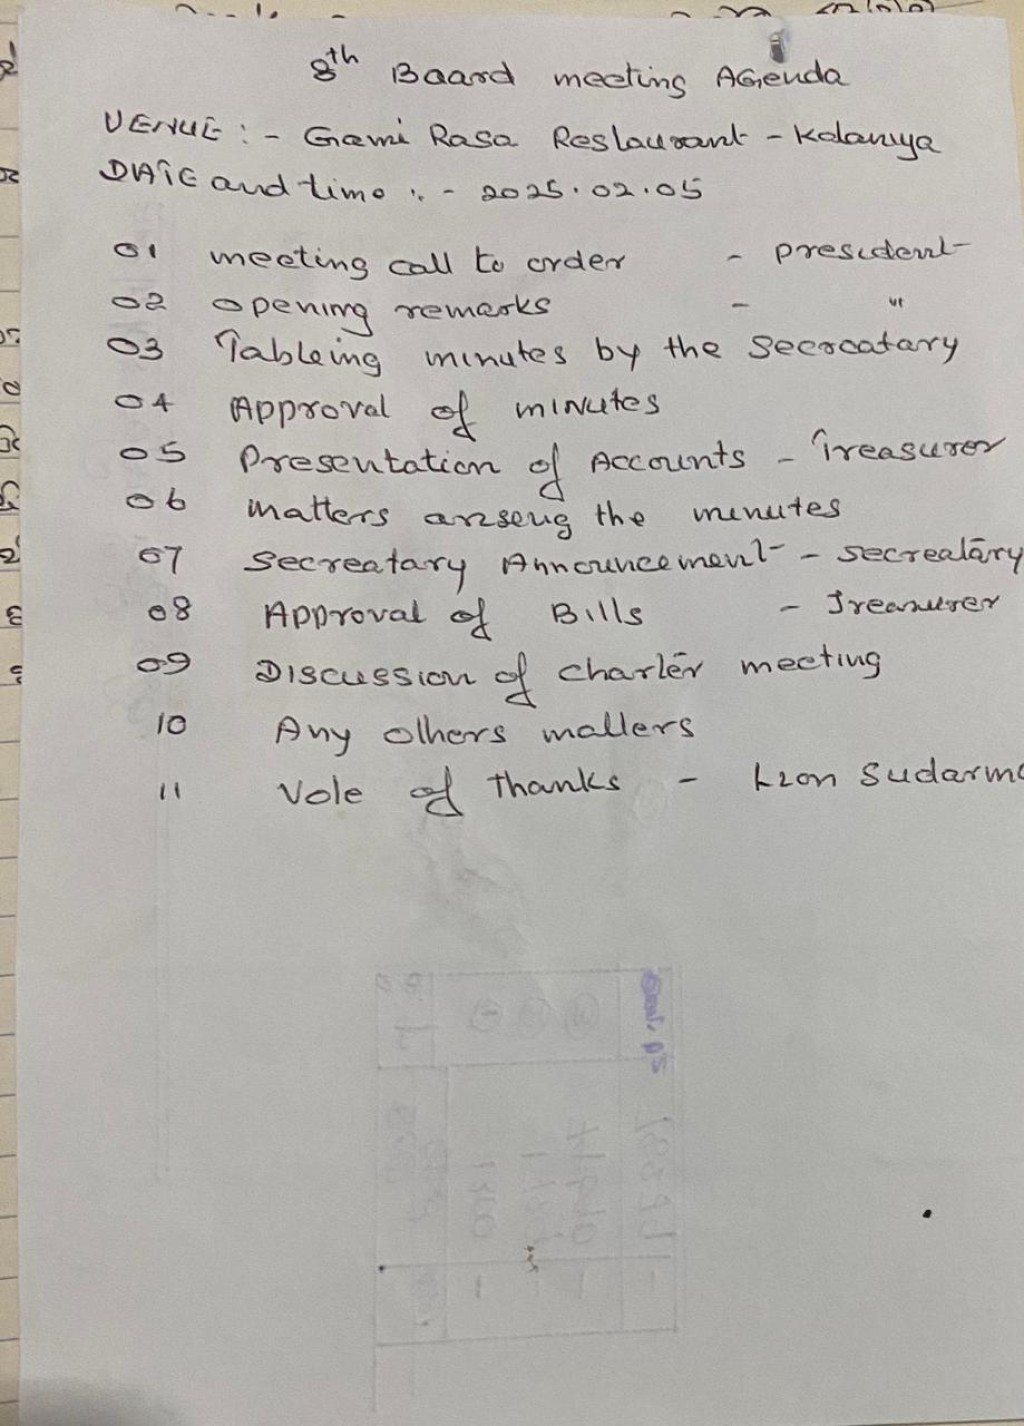 8th Board meeting AGenda
VENUE : - Gami Rasa Restaurant - Kelaniya
DATE and time : - 2025.02.05
01 meeting call to order - president
02 opening remarks - "
03 Tableing minutes by the Secrcatary
04 Approval of minutes
05 Presentation of Accounts - Treasurer
06 matters ariseing the minutes
07 Secreatary Announcement - Secreatary
08 Approval of Bills - Treasurer
09 Discussion of charter meeting
10 Any others matters
11 Vote of Thanks - Lion